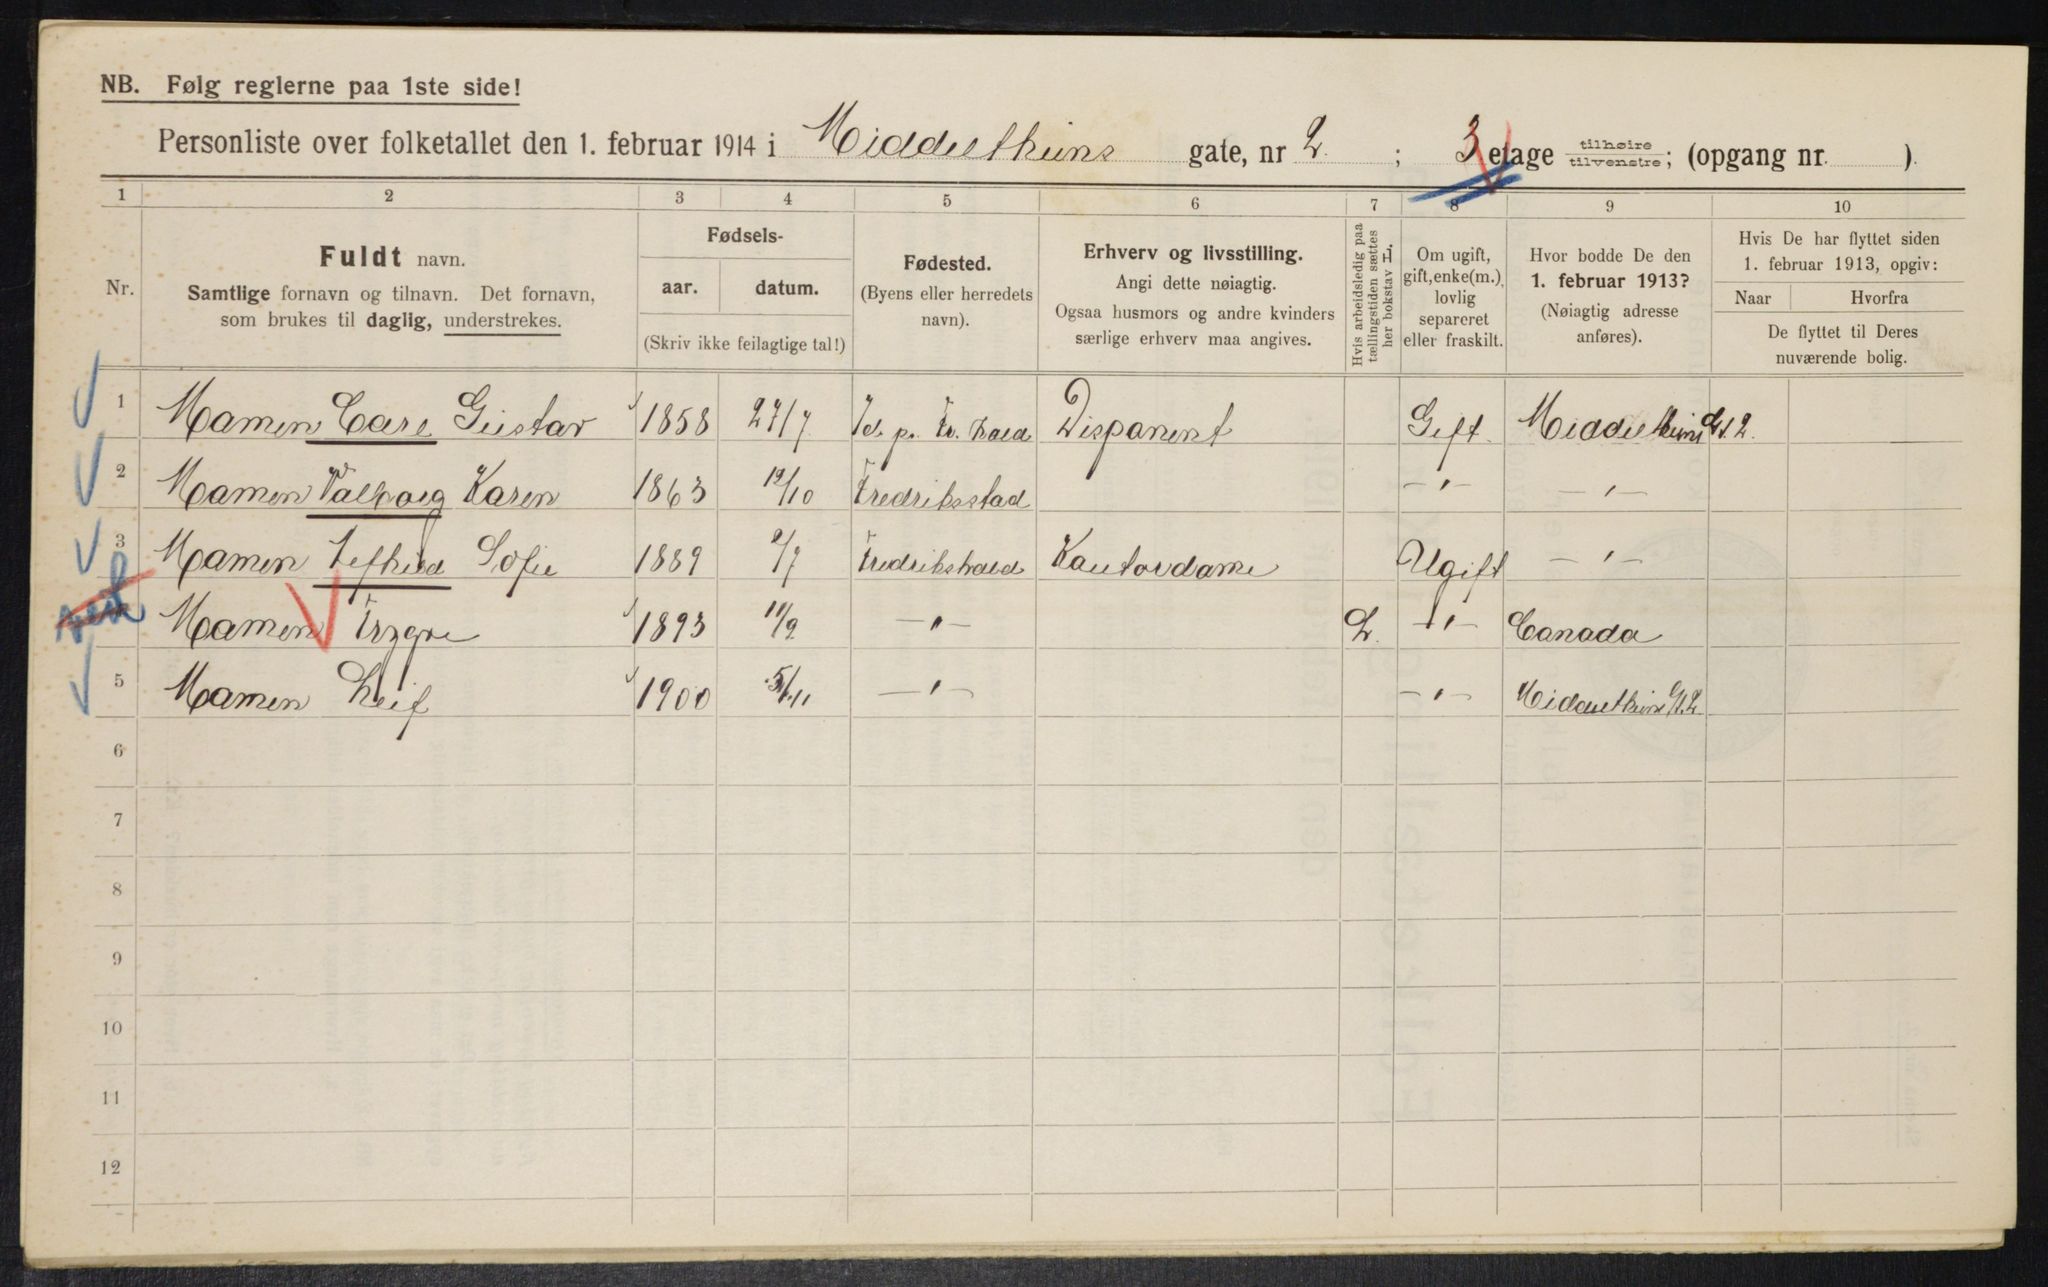 NB. Følg reglerne paa 1ste side!
Personliste over folketallet den 1. februar 1914 i Middelthuns gate, nr 2 ; 3 etage tilhøire tilvenstre ; (opgang nr. ).
1 2 3 4 5 6 7 8 9 10
Nr.
Fuldt navn.
Samtlige fornavn og tilnavn. Det fornavn,
som brukes til daglig, understrekes.
Fødsels-
aar. datum.
(Skriv ikke feilagtige tal!)
Fødested.
(Byens eller herredets
navn).
Erhverv og livsstilling.
Angi dette nøiagtig.
Ogsaa husmors og andre kvinders
særlige erhverv maa angives.
Hvis arbeidsledig paa
tællingstiden sættes
her bokstav L.
Om ugift,
gift, enke(m.),
lovlig
separeret
eller fraskilt.
Hvor bodde De den
1. februar 1913?
(Nøiagtig adresse
anføres).
Hvis De har flyttet siden
1. februar 1913, opgiv:
Naar Hvorfra
De flyttet til Deres
nuværende bolig.
1 Mamen Carl Gustav 1858 27/7 Id. p. Fr. hald Disponent Gift Middelthuns Gt. 2.
2 Mamen Valborg Karen 1863 12/10 Fredriksstad -"- -"-
3 Mamen Sofie 1889 /7 Fredrikshald Kontordame Ugift -"-
Mamen Trygve 1893 11/9 -"- L. -"- Canada
5 Mamen Leif 1900 5/11 -"- -"- Middelthuns Gt. 2.
6
7
8
9
10
11
12